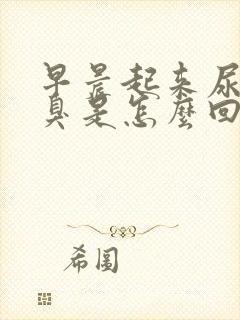 早晨起来尿
臭是怎麼回
希圖